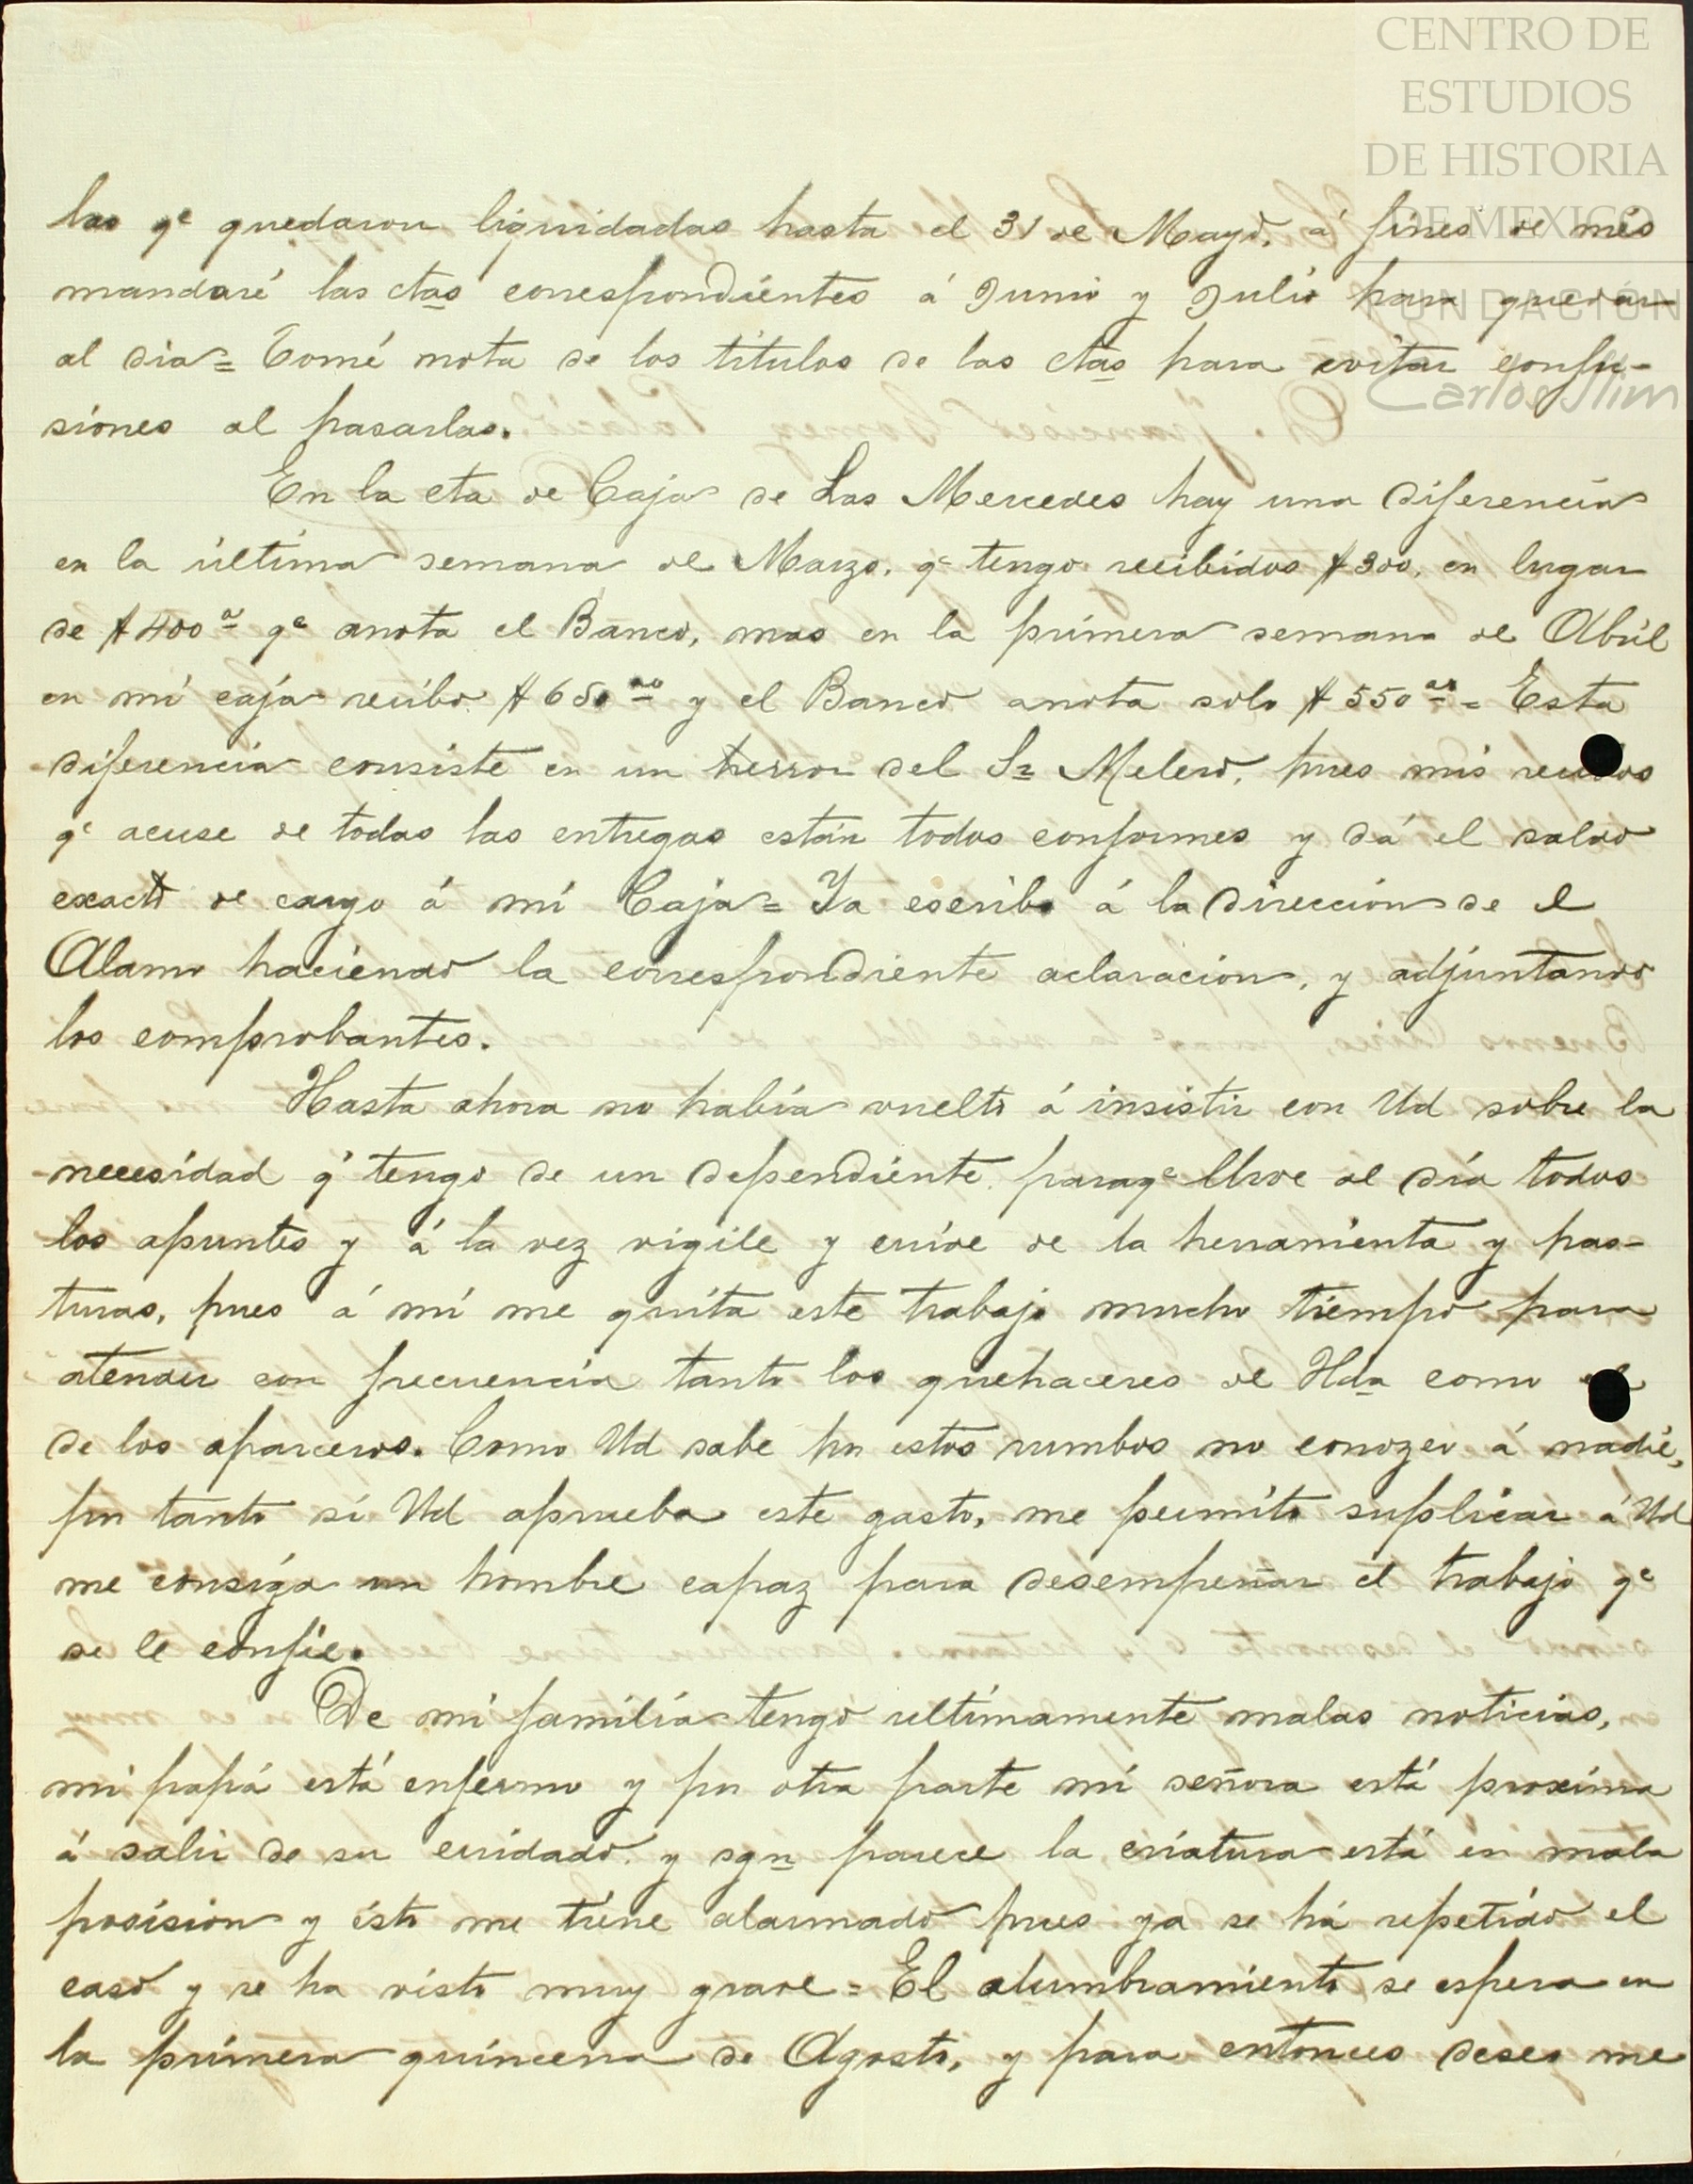 CENTRO DE
ESTUDIOS
DE HISTORIA
DE MEXICO
FUNDACIÓN
Carlos Slim
las qe quedaron liquidadas hasta el 31 de Mayo, á fines de més
mandaré las ctas correspondientes á Junio y Julio para quedar
al dia = Tomé nota de los titulos de las ctas para evitar confu-
siones al pasarlas.
En la cta de Caja de Las Mercedes hay una diferencia
en la última semana de Marzo, qe tengo recibidos $300, en lugar
de $400 qe anota el Banco, mas en la primera semana de Abril
en mi caja recibo $650 y el Banco anota solo $550 = Esta
diferencia consiste en un herror del Sr Melero, pues mis recibos
qe acuse de todas las entregas están todos conformes y dá el saldo
exacto de cargo á mi Caja = Ya escribo á la Direccion de el
Alamo haciendo la correspondiente aclaracion, y adjuntando
los comprobantes.
Hasta ahora no había vuelto á insistir con Ud sobre la
necesidad q' tengo de un dependiente paraqe lleve al día todos
los apuntes y á la vez vigile y cuide de la herramienta y pas-
turas, pues á mí me quita este trabajo mucho tiempo para
atender con frecuencia tanto los quehaceres de Hda como
de los aparceros. Como Ud sabe por estos rumbos no conozco á nadie,
por tanto si Ud aprueba este gasto, me permito suplicar á Ud
me consiga un hombre capaz para desempeñar el trabajo qe
se le confie.
De mi familia tengo ultimamente malas noticias,
mi papá está enfermo y por otra parte mi señora está proxima
á salir de su cuidado y sgn parece la criatura está en mala
posision y ésto me tiene alarmado pues ya se há repetido el
caso y se ha visto muy grave = El alumbramiento se espera en
la primera quincena de Agosto, y para entonces deseo me